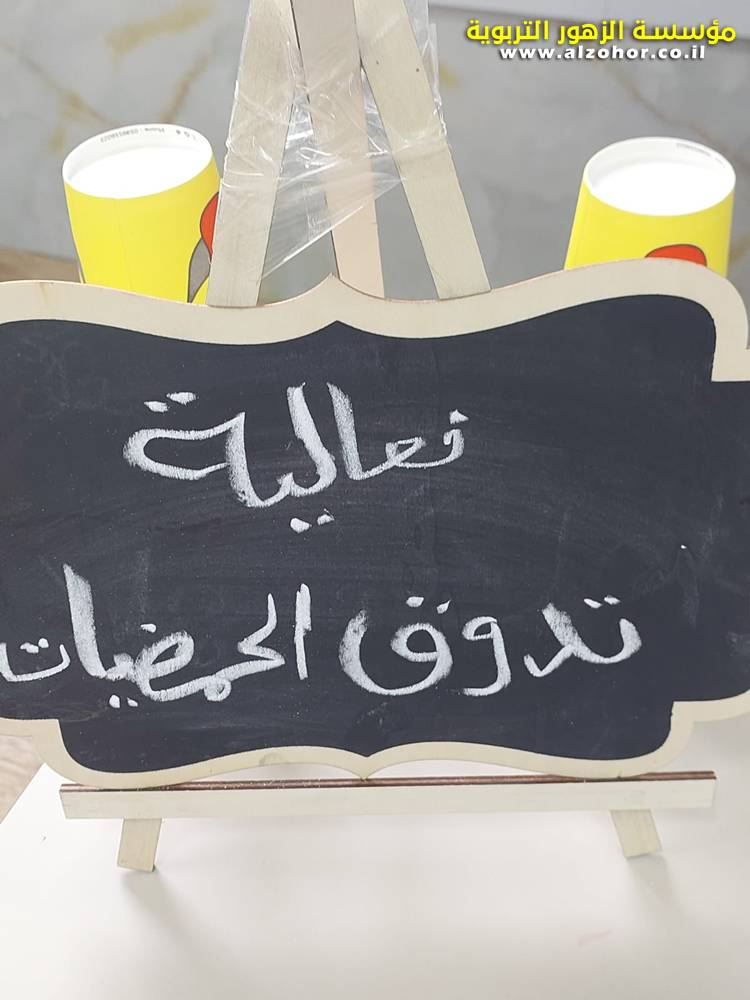 مؤسسة الزهور التربوية
www.alzohor.co.il
فعالية
تدوق الحمضيات